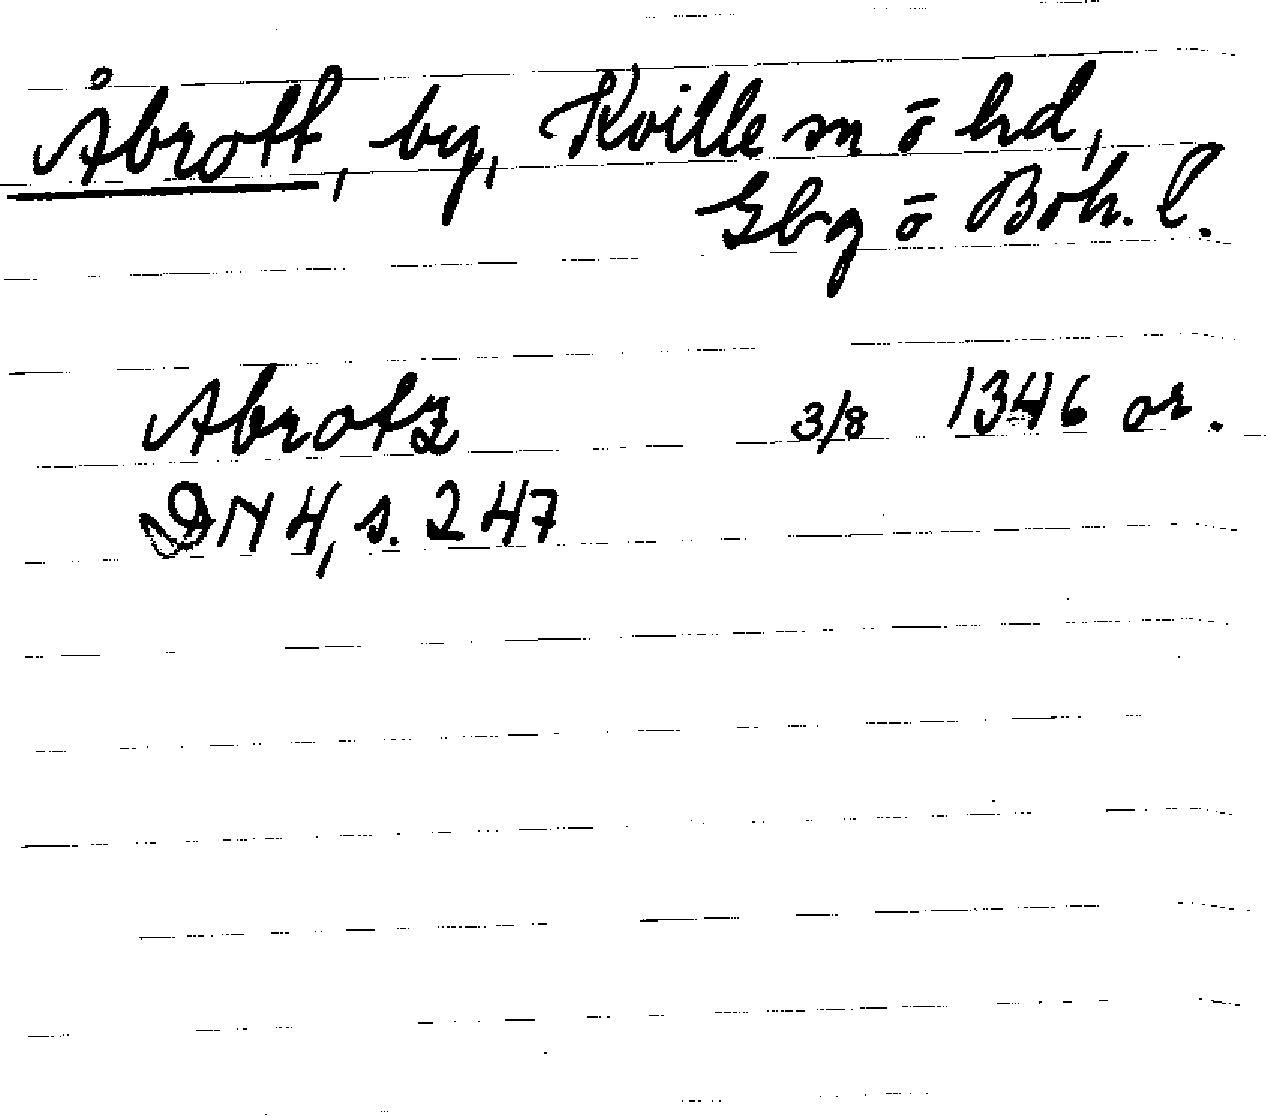 Åbrott, by, Kville sn o̅ hd,
Gbg o̅ Boh. l.
Abrotz 3/8 1346 or.
DN 4, s. 247